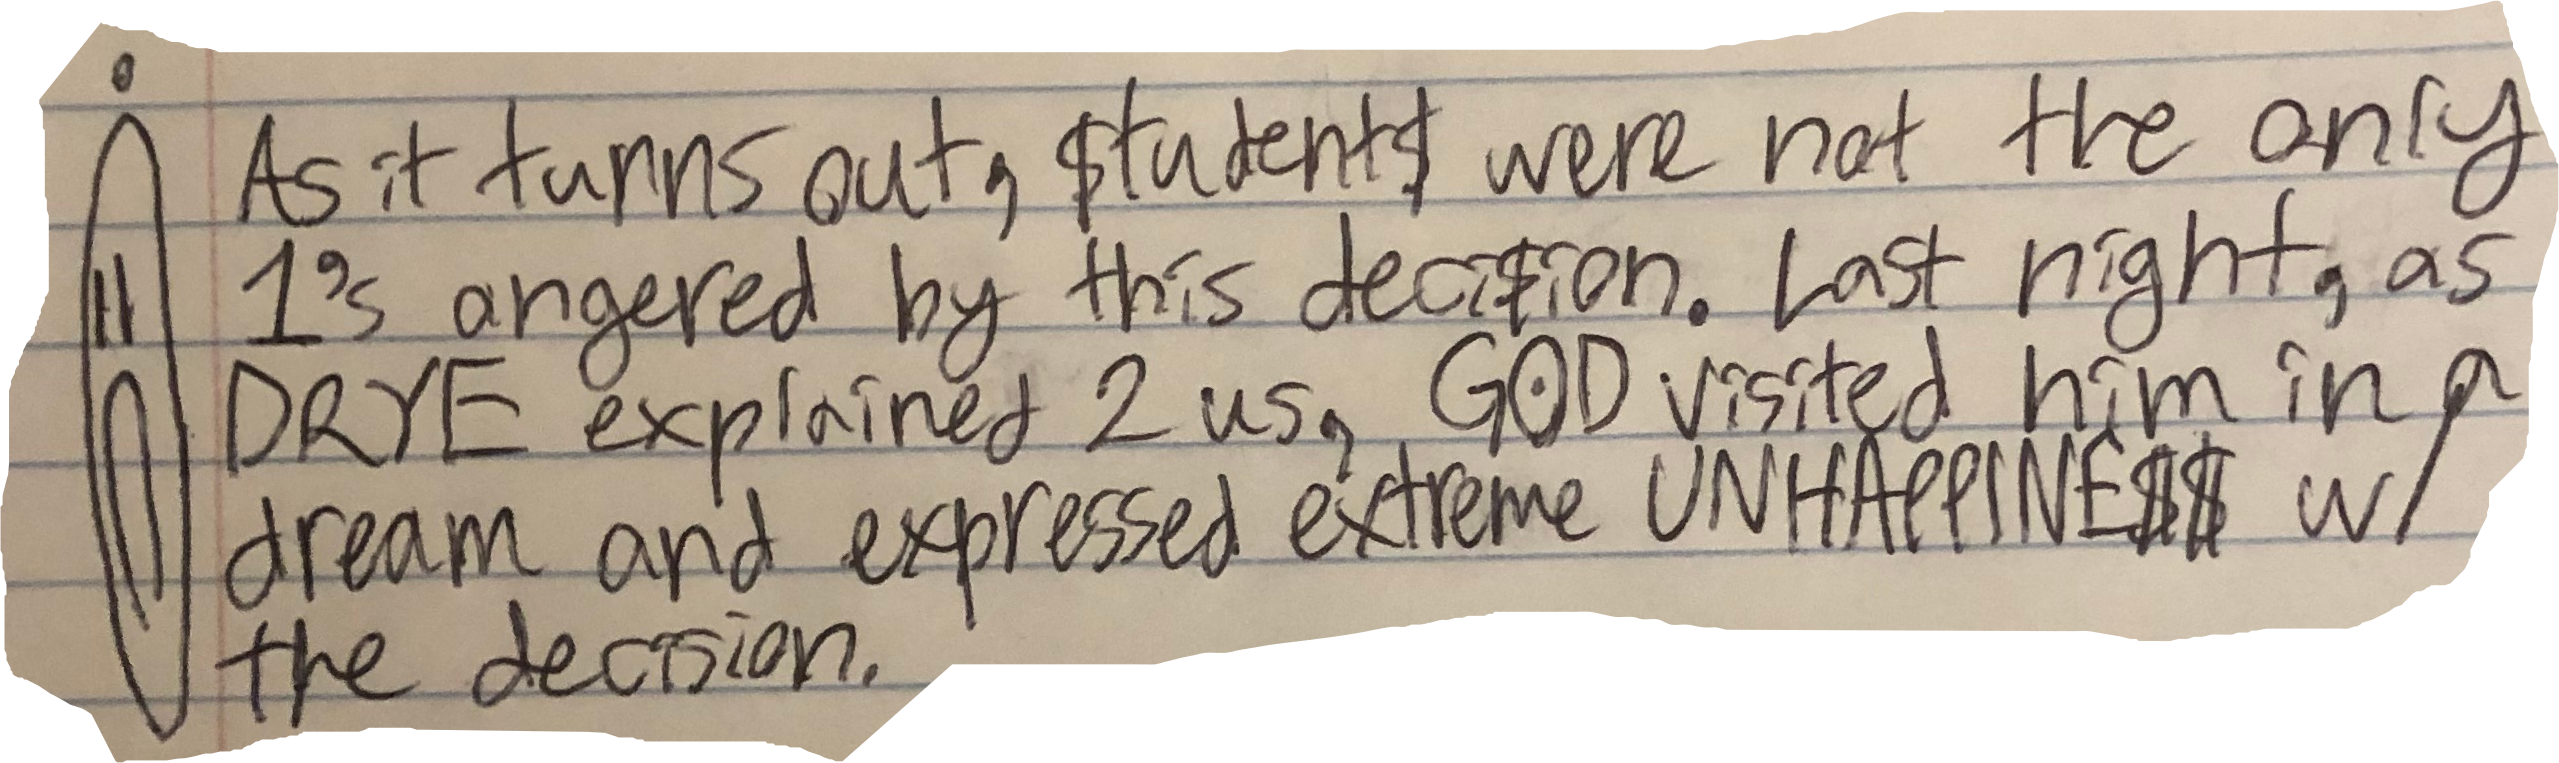 As it turns out, $tudent$ were not the only
1's angered by this deci$ion. Last night, as
DRYE explained 2 us, GOD visited him in a
dream and expressed extreme UNHAPPINE$$ w/
the decision.